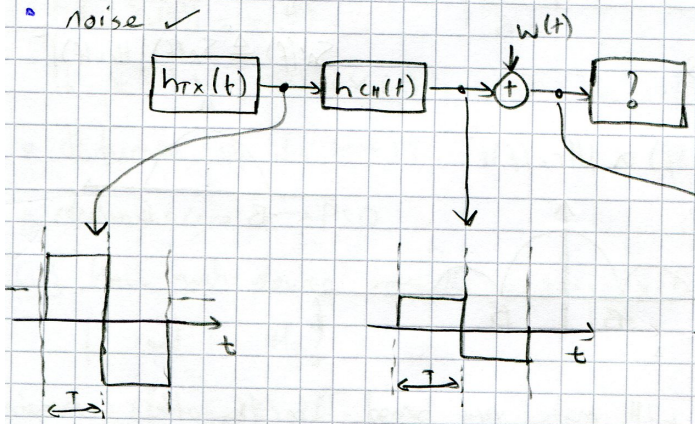 noise ✓
w(t)
hTX(t) hCH(t) + ?
t t
T T